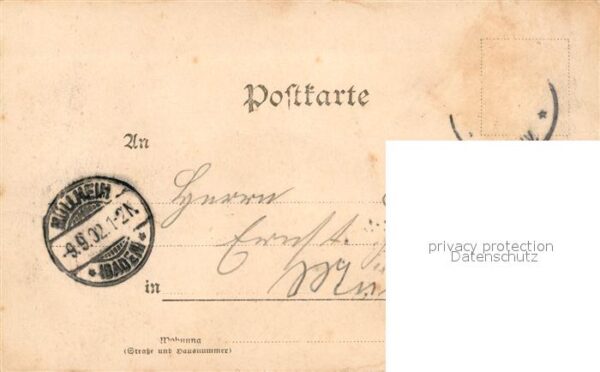 Postkarte
An
Herrn
Ernst
in
Wohnung
(Straße und Hausnummer)
MÜLLHEIM
-9.9.02.1-2N.
* (BADEN) *
privacy protection
Datenschutz